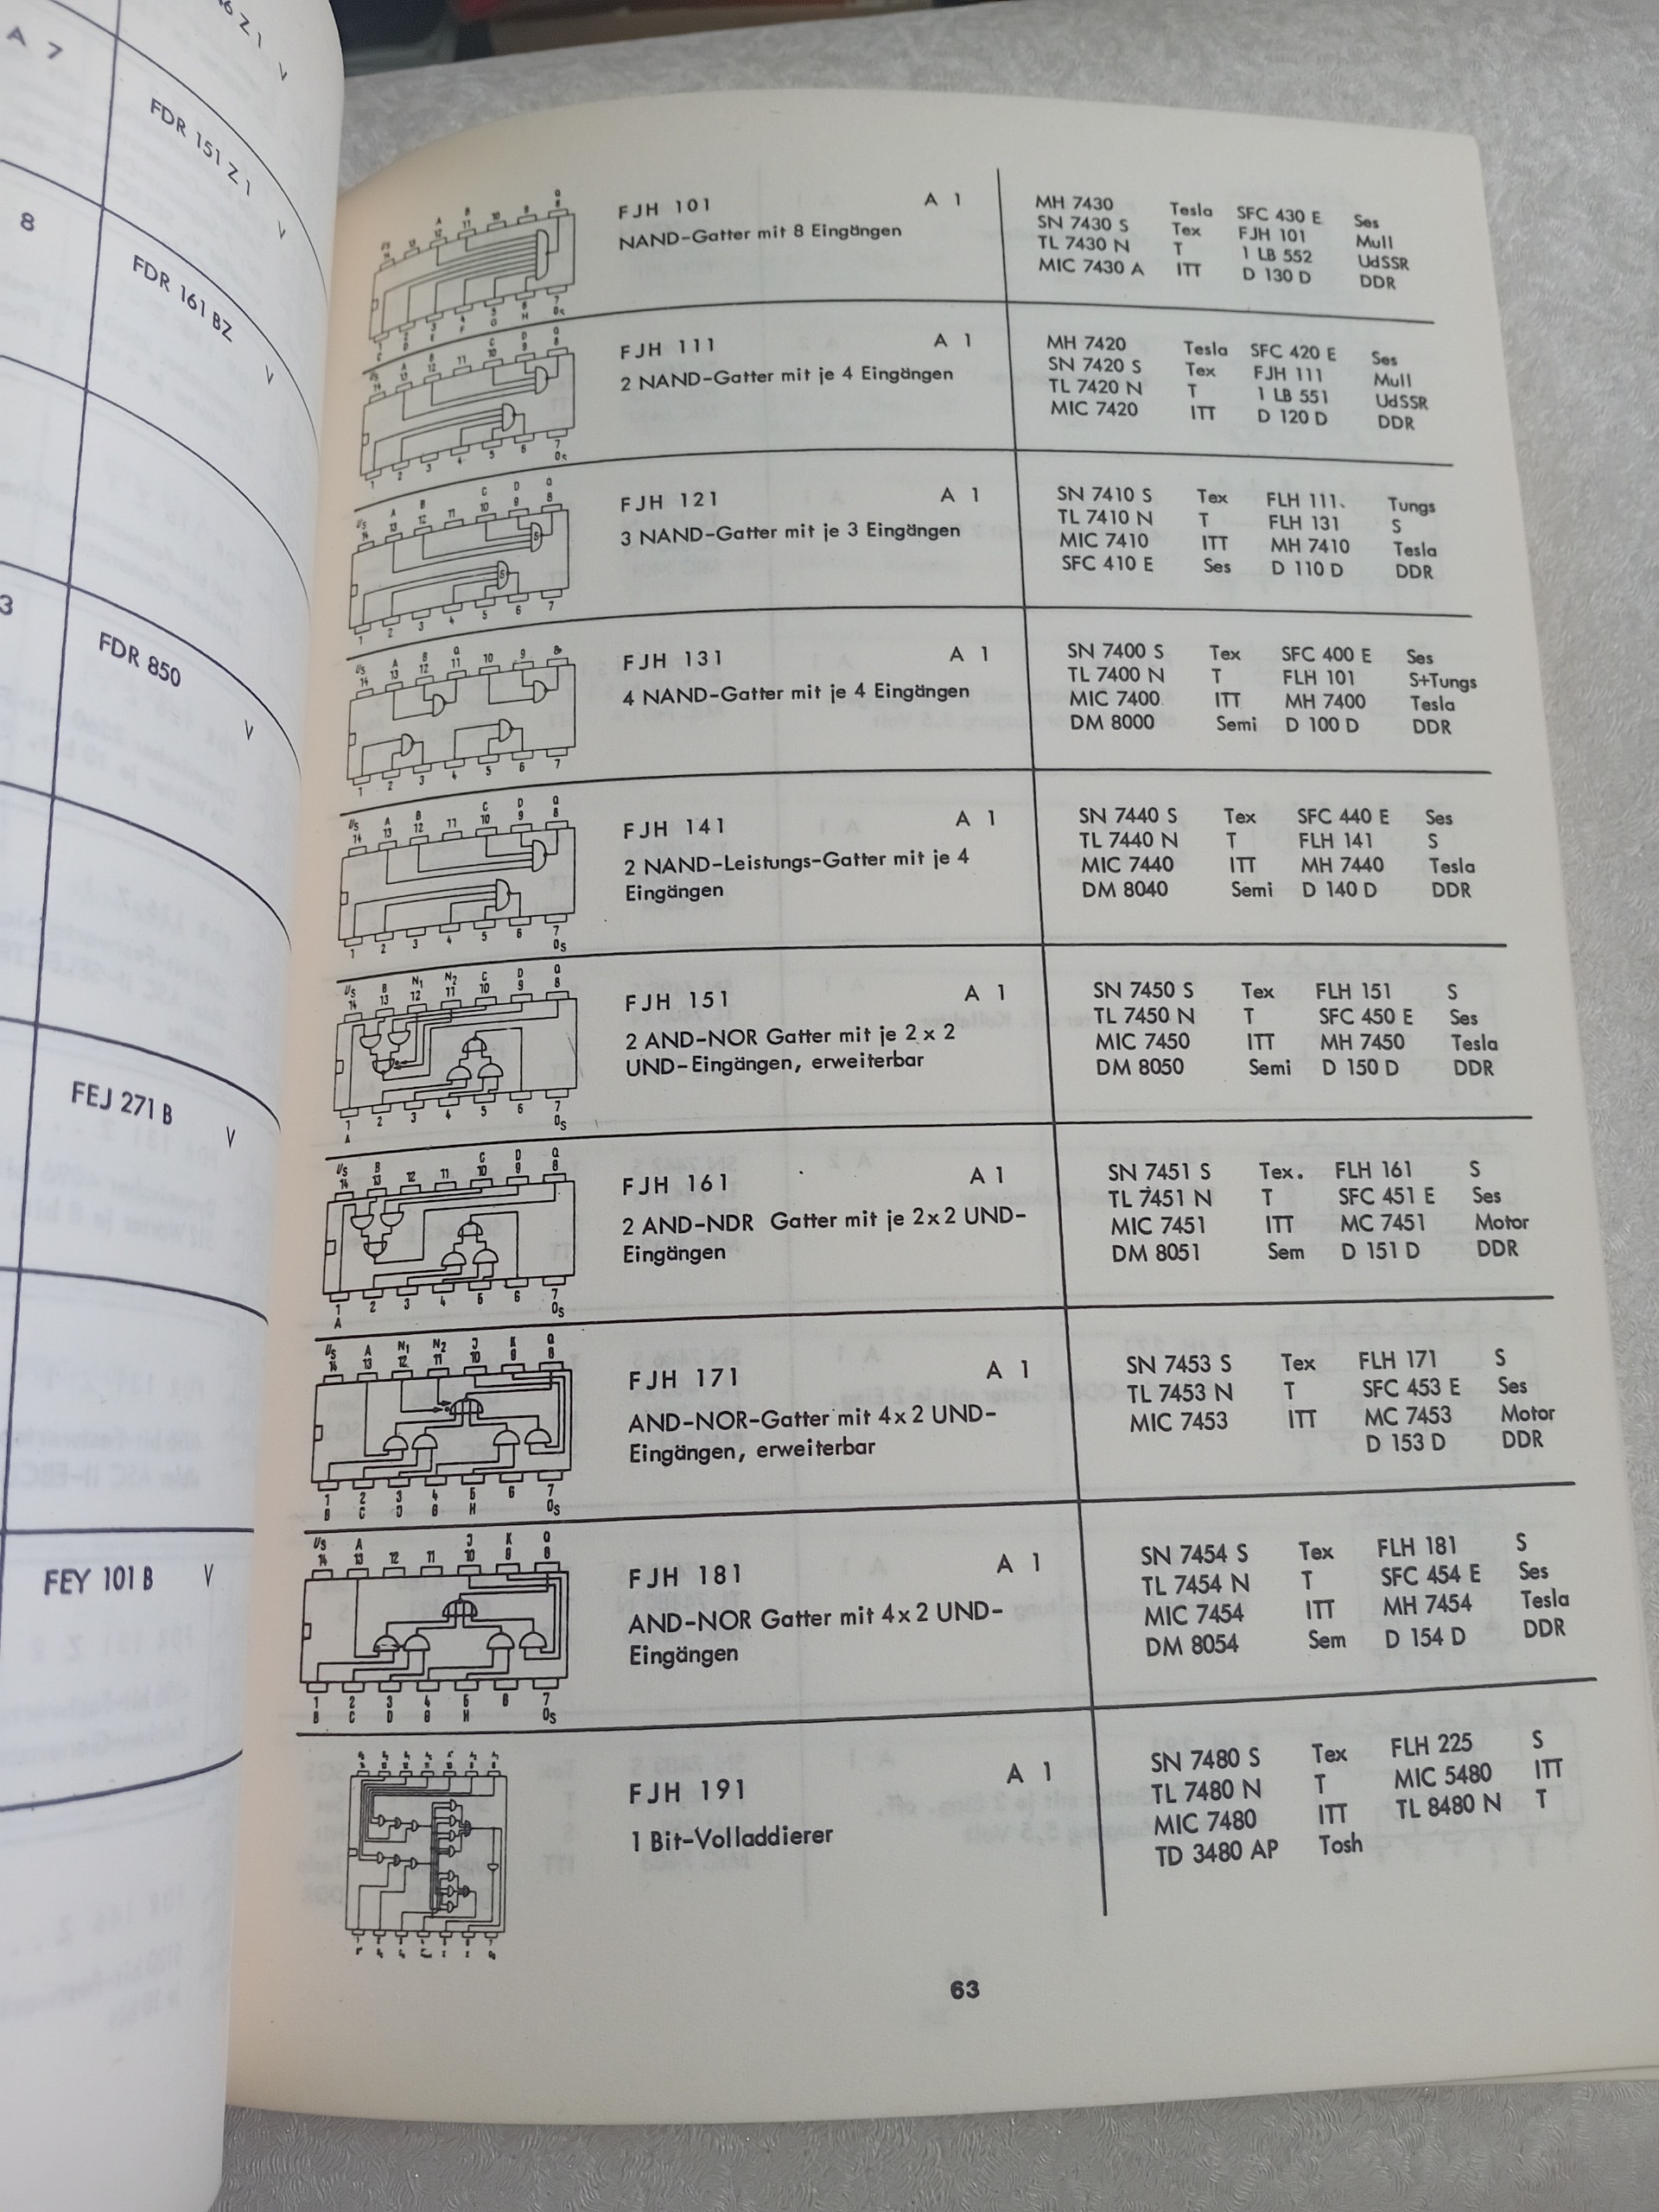 A 7
FDR 151 Z 1
V
8
FDR 161 BZ
V
3
FDR 850
V
FEJ 271 B
V
FEY 101 B V
FJH 101 A 1
NAND-Gatter mit 8 Eingängen
MH 7430 Tesla SFC 430 E Ses
SN 7430 S Tex FJH 101 Mull
TL 7430 N T 1 LB 552 UdSSR
MIC 7430 A ITT D 130 D DDR
FJH 111 A 1
2 NAND-Gatter mit je 4 Eingängen
MH 7420 Tesla SFC 420 E Ses
SN 7420 S Tex FJH 111 Mull
TL 7420 N T 1 LB 551 UdSSR
MIC 7420 ITT D 120 D DDR
FJH 121 A 1
3 NAND-Gatter mit je 3 Eingängen
SN 7410 S Tex FLH 111. Tungs
TL 7410 N T FLH 131 S
MIC 7410 ITT MH 7410 Tesla
SFC 410 E Ses D 110 D DDR
FJH 131 A 1
4 NAND-Gatter mit je 4 Eingängen
SN 7400 S Tex SFC 400 E Ses
TL 7400 N T FLH 101 S+Tungs
MIC 7400 ITT MH 7400 Tesla
DM 8000 Semi D 100 D DDR
FJH 141 A 1
2 NAND-Leistungs-Gatter mit je 4
Eingängen
SN 7440 S Tex SFC 440 E Ses
TL 7440 N T FLH 141 S
MIC 7440 ITT MH 7440 Tesla
DM 8040 Semi D 140 D DDR
FJH 151 A 1
2 AND-NOR Gatter mit je 2 x 2
UND-Eingängen, erweiterbar
SN 7450 S Tex FLH 151 S
TL 7450 N T SFC 450 E Ses
MIC 7450 ITT MH 7450 Tesla
DM 8050 Semi D 150 D DDR
FJH 161 A 1
2 AND-NDR Gatter mit je 2x2 UND-
Eingängen
SN 7451 S Tex. FLH 161 S
TL 7451 N T SFC 451 E Ses
MIC 7451 ITT MC 7451 Motor
DM 8051 Sem D 151 D DDR
FJH 171 A 1
AND-NOR-Gatter mit 4x2 UND-
Eingängen, erweiterbar
SN 7453 S Tex FLH 171 S
TL 7453 N T SFC 453 E Ses
MIC 7453 ITT MC 7453 Motor
D 153 D DDR
FJH 181 A 1
AND-NOR Gatter mit 4x2 UND-
Eingängen
SN 7454 S Tex FLH 181 S
TL 7454 N T SFC 454 E Ses
MIC 7454 ITT MH 7454 Tesla
DM 8054 Sem D 154 D DDR
FJH 191 A 1
1 Bit-Volladdierer
SN 7480 S Tex FLH 225 S
TL 7480 N T MIC 5480 ITT
MIC 7480 ITT TL 8480 N T
TD 3480 AP Tosh
63